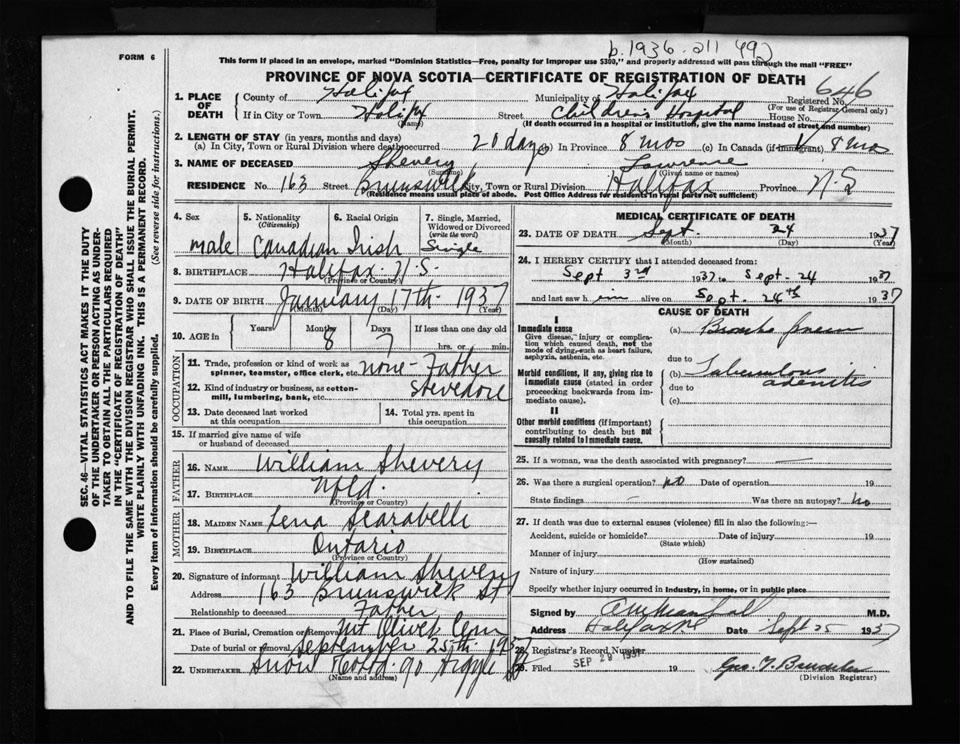 b. 1936 - 211 492
FORM 6
This form if placed in an envelope, marked "Dominion Statistics—Free, penalty for improper use $300," and properly addressed will pass through the mail "FREE"
PROVINCE OF NOVA SCOTIA—CERTIFICATE OF REGISTRATION OF DEATH
646
SEC. 46—VITAL STATISTICS ACT MAKES IT THE DUTY
OF THE UNDERTAKER OR PERSON ACTING AS UNDER-
TAKER TO OBTAIN ALL THE PARTICULARS REQUIRED
IN THE "CERTIFICATE OF REGISTRATION OF DEATH"
AND TO FILE THE SAME WITH THE DIVISION REGISTRAR WHO SHALL ISSUE THE BURIAL PERMIT.
WRITE PLAINLY WITH UNFADING INK. THIS IS A PERMANENT RECORD.
Every item of information should be carefully supplied. (See reverse side for instructions.)
1. PLACE OF DEATH County of Halifax Municipality of Halifax Registered No.
(For use of Registrar General only)
If in City or Town Halifax Street Children's Hospital House No.
(Name) (If death occurred in a hospital or institution, give the name instead of street and number)
2. LENGTH OF STAY (in years, months and days)
(a) In City, Town or Rural Division where death occurred 20 days (b) In Province 8 mos (c) In Canada (if immigrant) 8 mos
3. NAME OF DECEASED Shevery Lawrence
(Surname) (Given name or names)
RESIDENCE No. 163 Street Brunswick City, Town or Rural Division Halifax Province N.S
(Residence means usual place of abode. Post Office Address for residents in rural parts not sufficient)
4. Sex male
5. Nationality (Citizenship) Canadian
6. Racial Origin Irish
7. Single, Married, Widowed or Divorced (write the word) Single
8. BIRTHPLACE Halifax N.S.
(Province or Country)
9. DATE OF BIRTH January 17th 1937
(Month) (Day) (Year)
10. AGE in Years Months 8 Days 7 If less than one day old
hrs. or min.
OCCUPATION
11. Trade, profession or kind of work as spinner, teamster, office clerk, etc. none - Father
12. Kind of industry or business, as cotton-mill, lumbering, bank, etc. Stevedore
13. Date deceased last worked at this occupation
14. Total yrs. spent in this occupation
15. If married give name of wife or husband of deceased
FATHER
16. NAME William Shevery
17. BIRTHPLACE Nfld.
(Province or Country)
MOTHER
18. MAIDEN NAME Lena Scarabelli
19. BIRTHPLACE Ontario
(Province or Country)
20. Signature of informant William Shevery
Address 163 Brunswick St
Relationship to deceased Father
21. Place of Burial, Cremation or Removal Mt Olivet Cem
Date of burial or removal September 25th 1937
22. UNDERTAKER Snow Co Ltd. 90 Argyle St
(Name and address)
MEDICAL CERTIFICATE OF DEATH
23. DATE OF DEATH Sept. 24 1937
(Month) (Day) (Year)
24. I HEREBY CERTIFY that I attended deceased from:
Sept 3rd 1937 to Sept. 24 1937
and last saw him alive on Sept. 24th 1937
CAUSE OF DEATH
I
Immediate cause
Give disease, injury or complication which caused death, not the mode of dying, such as heart failure, asphyxia, asthenia, etc.
(a) Broncho
due to
Morbid conditions, if any, giving rise to immediate cause (stated in order proceeding backwards from immediate cause).
(b) Tuberculous adenitis
due to
(c)
II
Other morbid conditions (if important) contributing to death but not causally related to immediate cause.
25. If a woman, was the death associated with pregnancy? —
26. Was there a surgical operation? no Date of operation 19
State findings — Was there an autopsy? no
27. If death was due to external causes (violence) fill in also the following:—
Accident, suicide or homicide? Date of injury 19
(State which)
Manner of injury
(How sustained)
Nature of injury
Specify whether injury occurred in industry, in home, or in public place
Signed by M.D.
Address Halifax NS Date Sept 25 1937
28. Registrar's Record Number
29. Filed SEP 29 1937 19 Geo.
(Division Registrar)